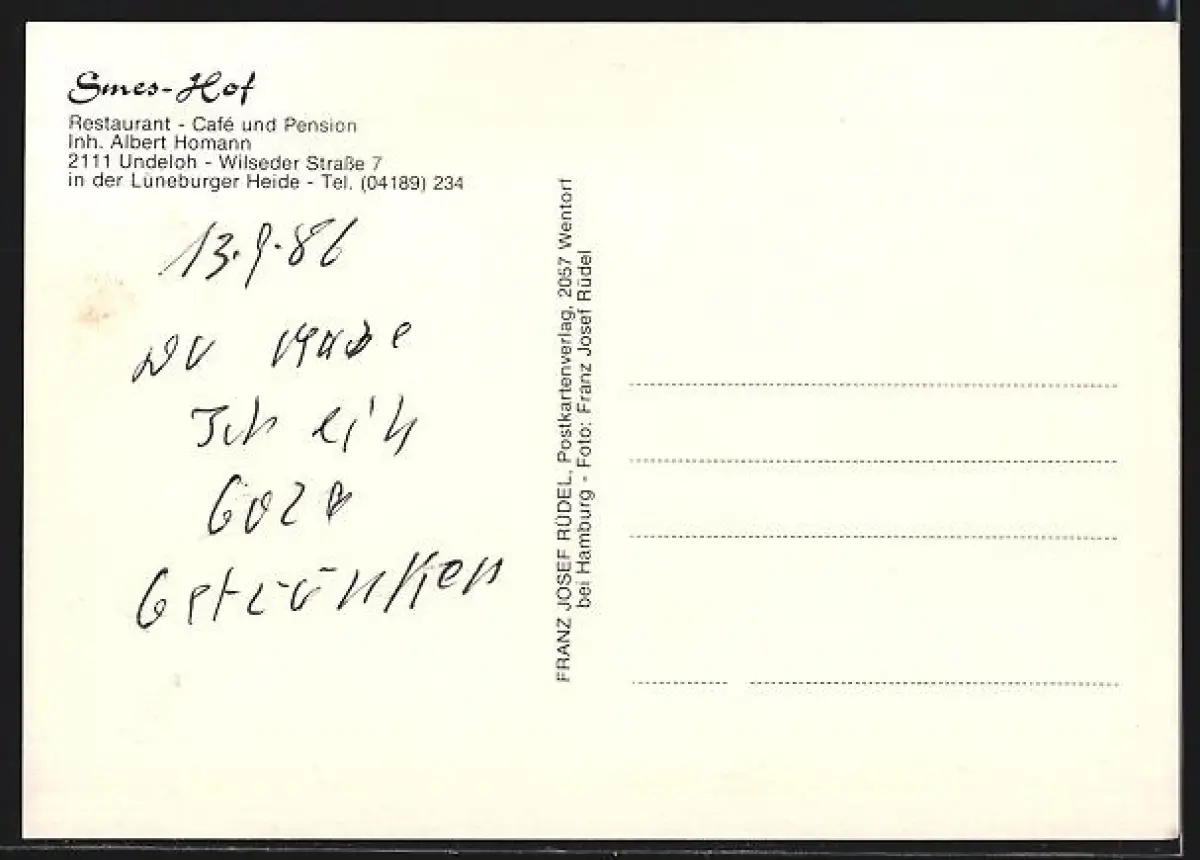 Smes-Hof
Restaurant - Café und Pension
Inh. Albert Homann
2111 Undeloh - Wilseder Straße 7
in der Lüneburger Heide - Tel. (04189) 234
13.9.86
habe
Ich ein
Getrunken
FRANZ JOSEF RÜDEL, Postkartenverlag, 2057 Wentorf
bei Hamburg - Foto: Franz Josef Rüdel